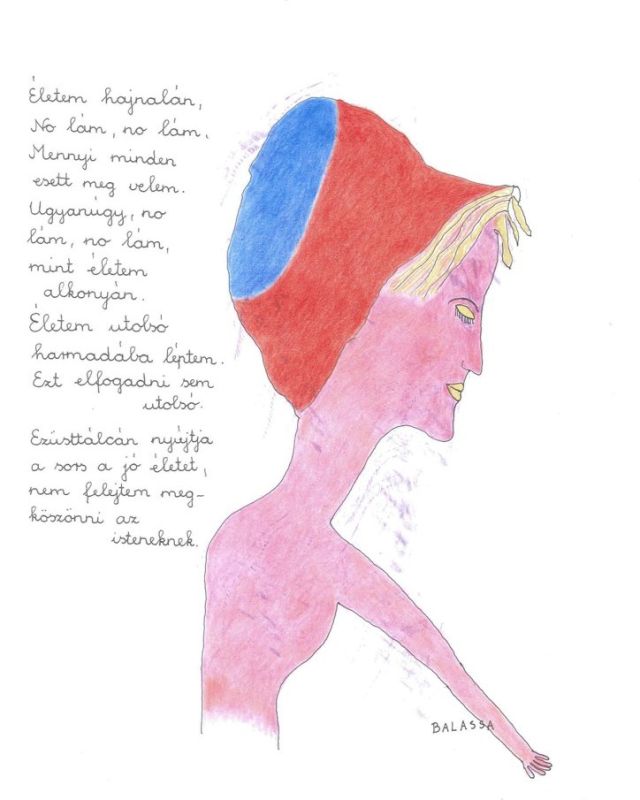 Életem hajnalán,
No lám, no lám.
Mennyi minden
esett meg velem.
Ugyanúgy, no
lám, no lám,
mint életem
alkonyán.
Életem utolsó
harmadába léptem.
Ezt elfogadni sem
utolsó.
Ezüsttálcán nyújtja
a sors a jó életet,
nem felejtem meg-
köszönni az
isteneknek.
BALASSA